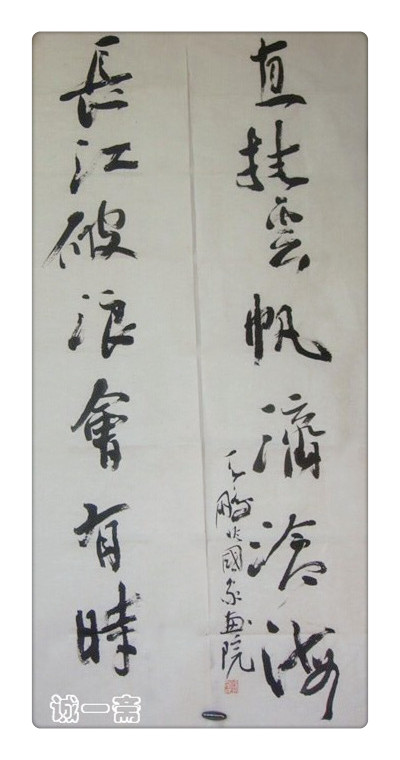 直挂雲帆濟滄海
鵬於國家画院
長江破浪會有時
诚一斋